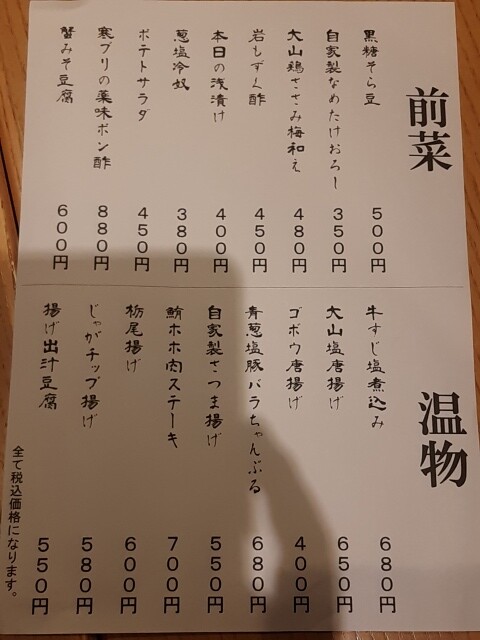 前菜
黒糖そら豆 500円
自家製なめたけおろし 350円
大山鶏ささみ梅和え 480円
岩もずく酢 450円
本日の浅漬け 400円
葱塩冷奴 380円
ポテトサラダ 450円
寒ブリの薬味ポン酢 880円
蟹みそ豆腐 600円
温物
牛すじ塩煮込み 680円
大山塩唐揚げ 650円
ゴボウ唐揚げ 400円
青葱塩豚バラちゃんぷる 680円
自家製さつま揚げ 550円
鮪ホホ肉ステーキ 700円
栃尾揚げ 600円
じゃがチップ揚げ 580円
揚げ出汁豆腐 550円
全て税込価格になります。